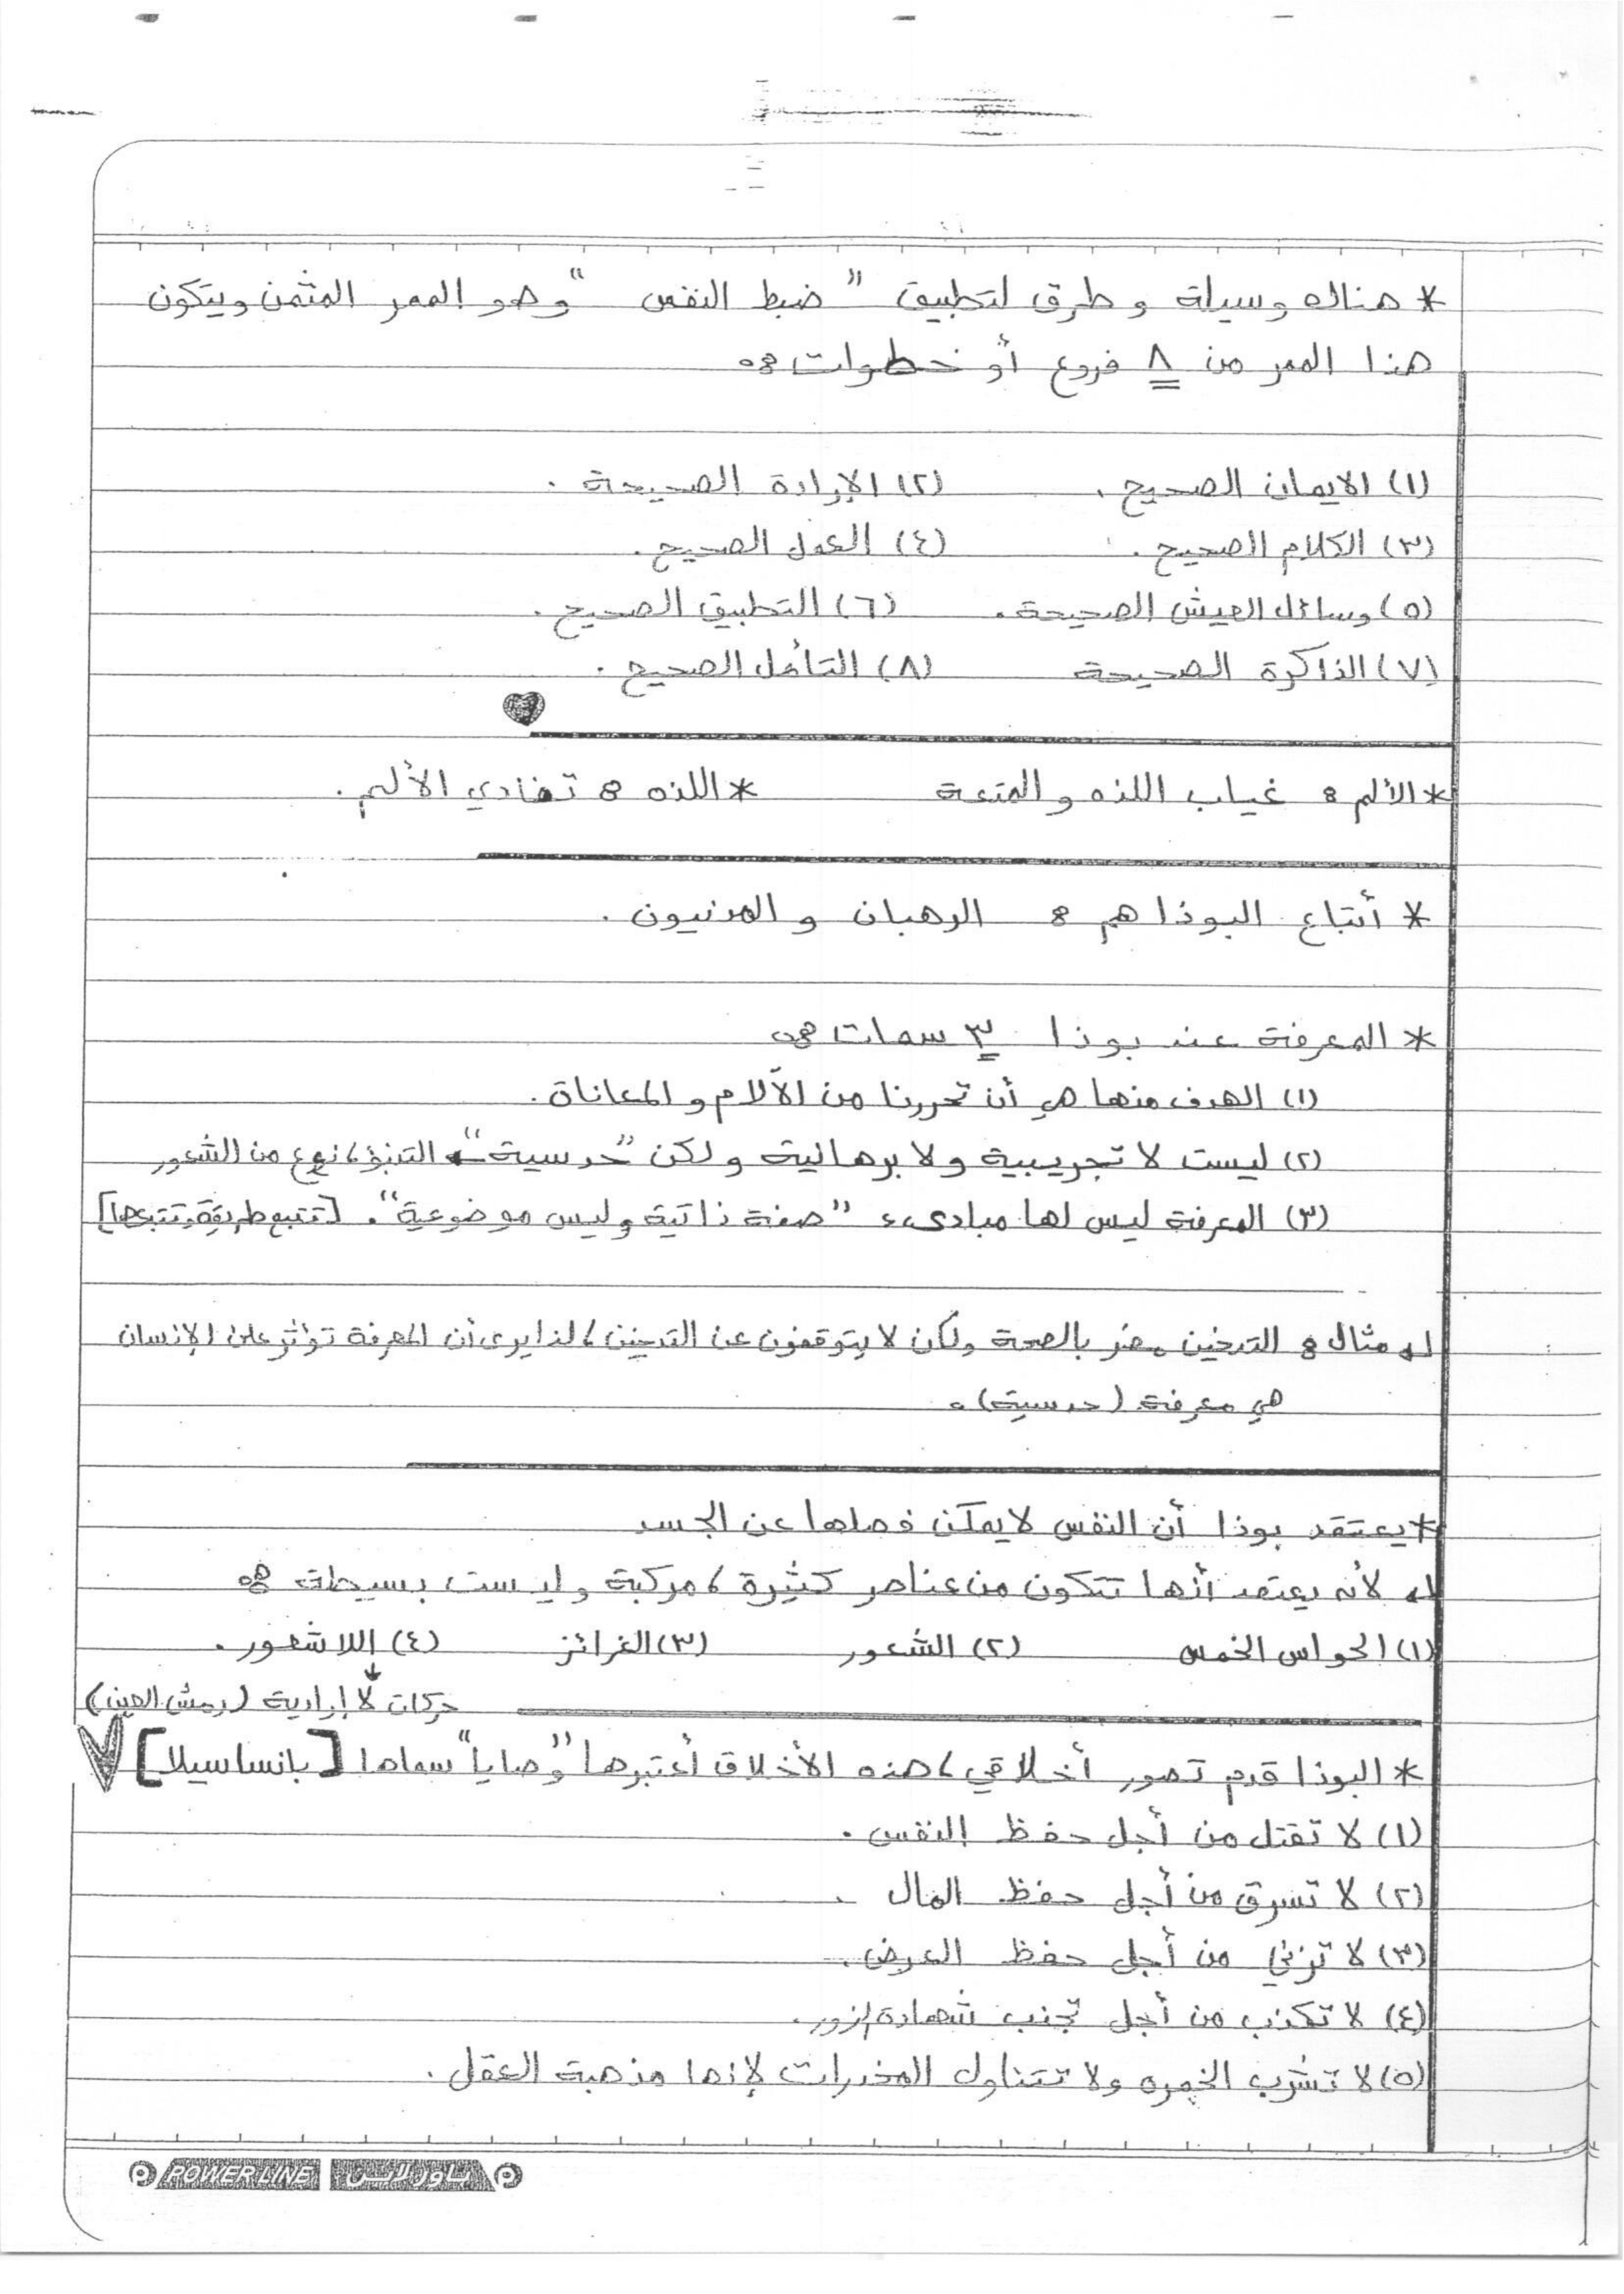 * هناك وسيلة و طرق لتطبيق "ضبط النفس" وهو الممر المثمن ويتكون
هذا الممر من ٨ فروع أو خطوات :-
(١) الايمان الصحيح . (٢) الإرادة الصحيحة .
(٣) الكلام الصحيح . (٤) العمل الصحيح .
(٥) وسائل العيش الصحيحة . (٦) التطبيق الصحيح .
(٧) الذاكرة الصحيحة (٨) التأمل الصحيح .
* الألم : غياب اللذه و المتعة * اللذه : تفادي الألم .
* أتباع البوذا هم : الرهبان و المدنيون .
* المعرفة عند بوذا ٣ سمات :-
(١) الهدف منها هي أن تحررنا من الآلام و المعاناة .
(٢) ليست لا تجريبية ولا برهانية و لكن "حدسية" ← التنبؤ، نوع من الشعور
(٣) المعرفة ليس لها مبادىء "صفة ذاتية وليس موضوعية" . [تتبع طريقة تتبعها]
↵ مثال : التدخين مضر بالصحة ولكن لا يتوقفون عن التدخين، لذا يرى أن المعرفة تؤثر على الإنسان
هي معرفة (حدسية) .
* يعتقد بوذا أن النفس لا يمكن فصلها عن الجسد
↵ لأنه يعتقد أنها تتكون من عناصر كثيرة، مركبة وليست بسيطة :-
(١) الحواس الخمس (٢) الشعور (٣) الغرائز (٤) اللاشعور .
↓ حركات لا إرادية (رمش العين)
* البوذا قدم تصور أخلاقي، هذه الأخلاق أعتبرها "وصايا" سماها [بانساسيلا]
(١) لا تقتل من أجل حفظ النفس .
(٢) لا تسرق من أجل حفظ المال .
(٣) لا تزني من أجل حفظ العرض .
(٤) لا تكذب من أجل تجنب شهادة الزور .
(٥) لا تشرب الخمره ولا تتناول المخدرات لإنها مذهبة العقل .
POWER LINE باور لايـن